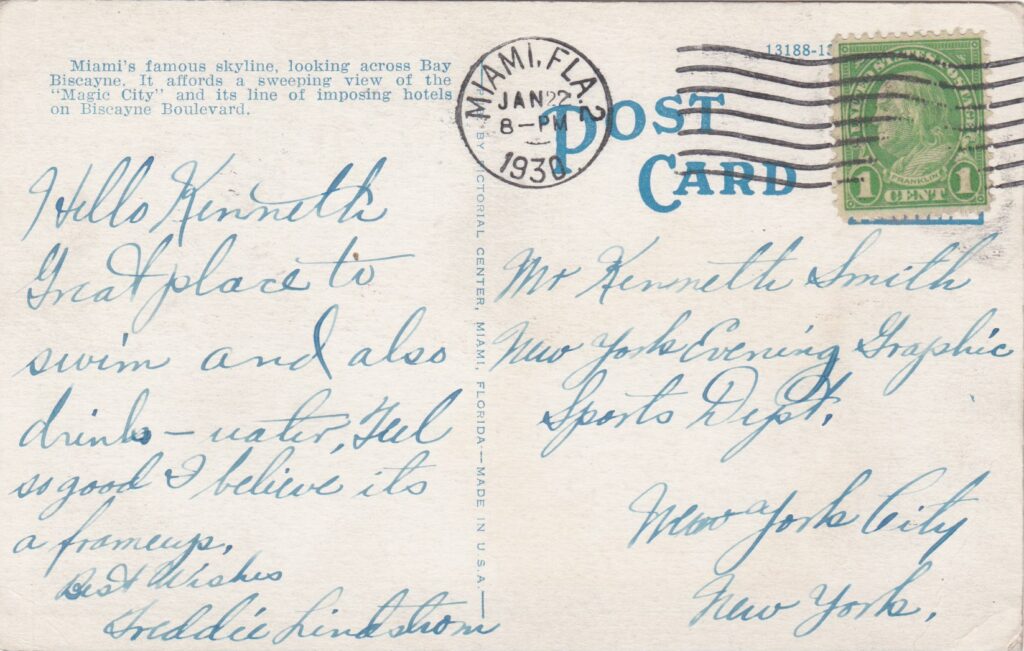 Miami's famous skyline, looking across Bay
Biscayne. It affords a sweeping view of the
"Magic City" and its line of imposing hotels
on Biscayne Boulevard.
Hello Kenneth
Great place to
swim and also
drink – water, Feel
so good I believe its
a frameup.
Best Wishes
Freddie Lindstrom
BY VICTORIAL CENTER, MIAMI, FLORIDA — MADE IN U.S.A.
MIAMI, FLA. 2
JAN 22
8–PM
1930
13188
POST
CARD
FRANKLIN
1 CENT 1
Mr Kenneth Smith
New York Evening Graphic
Sports Dept.
New York City
New York.